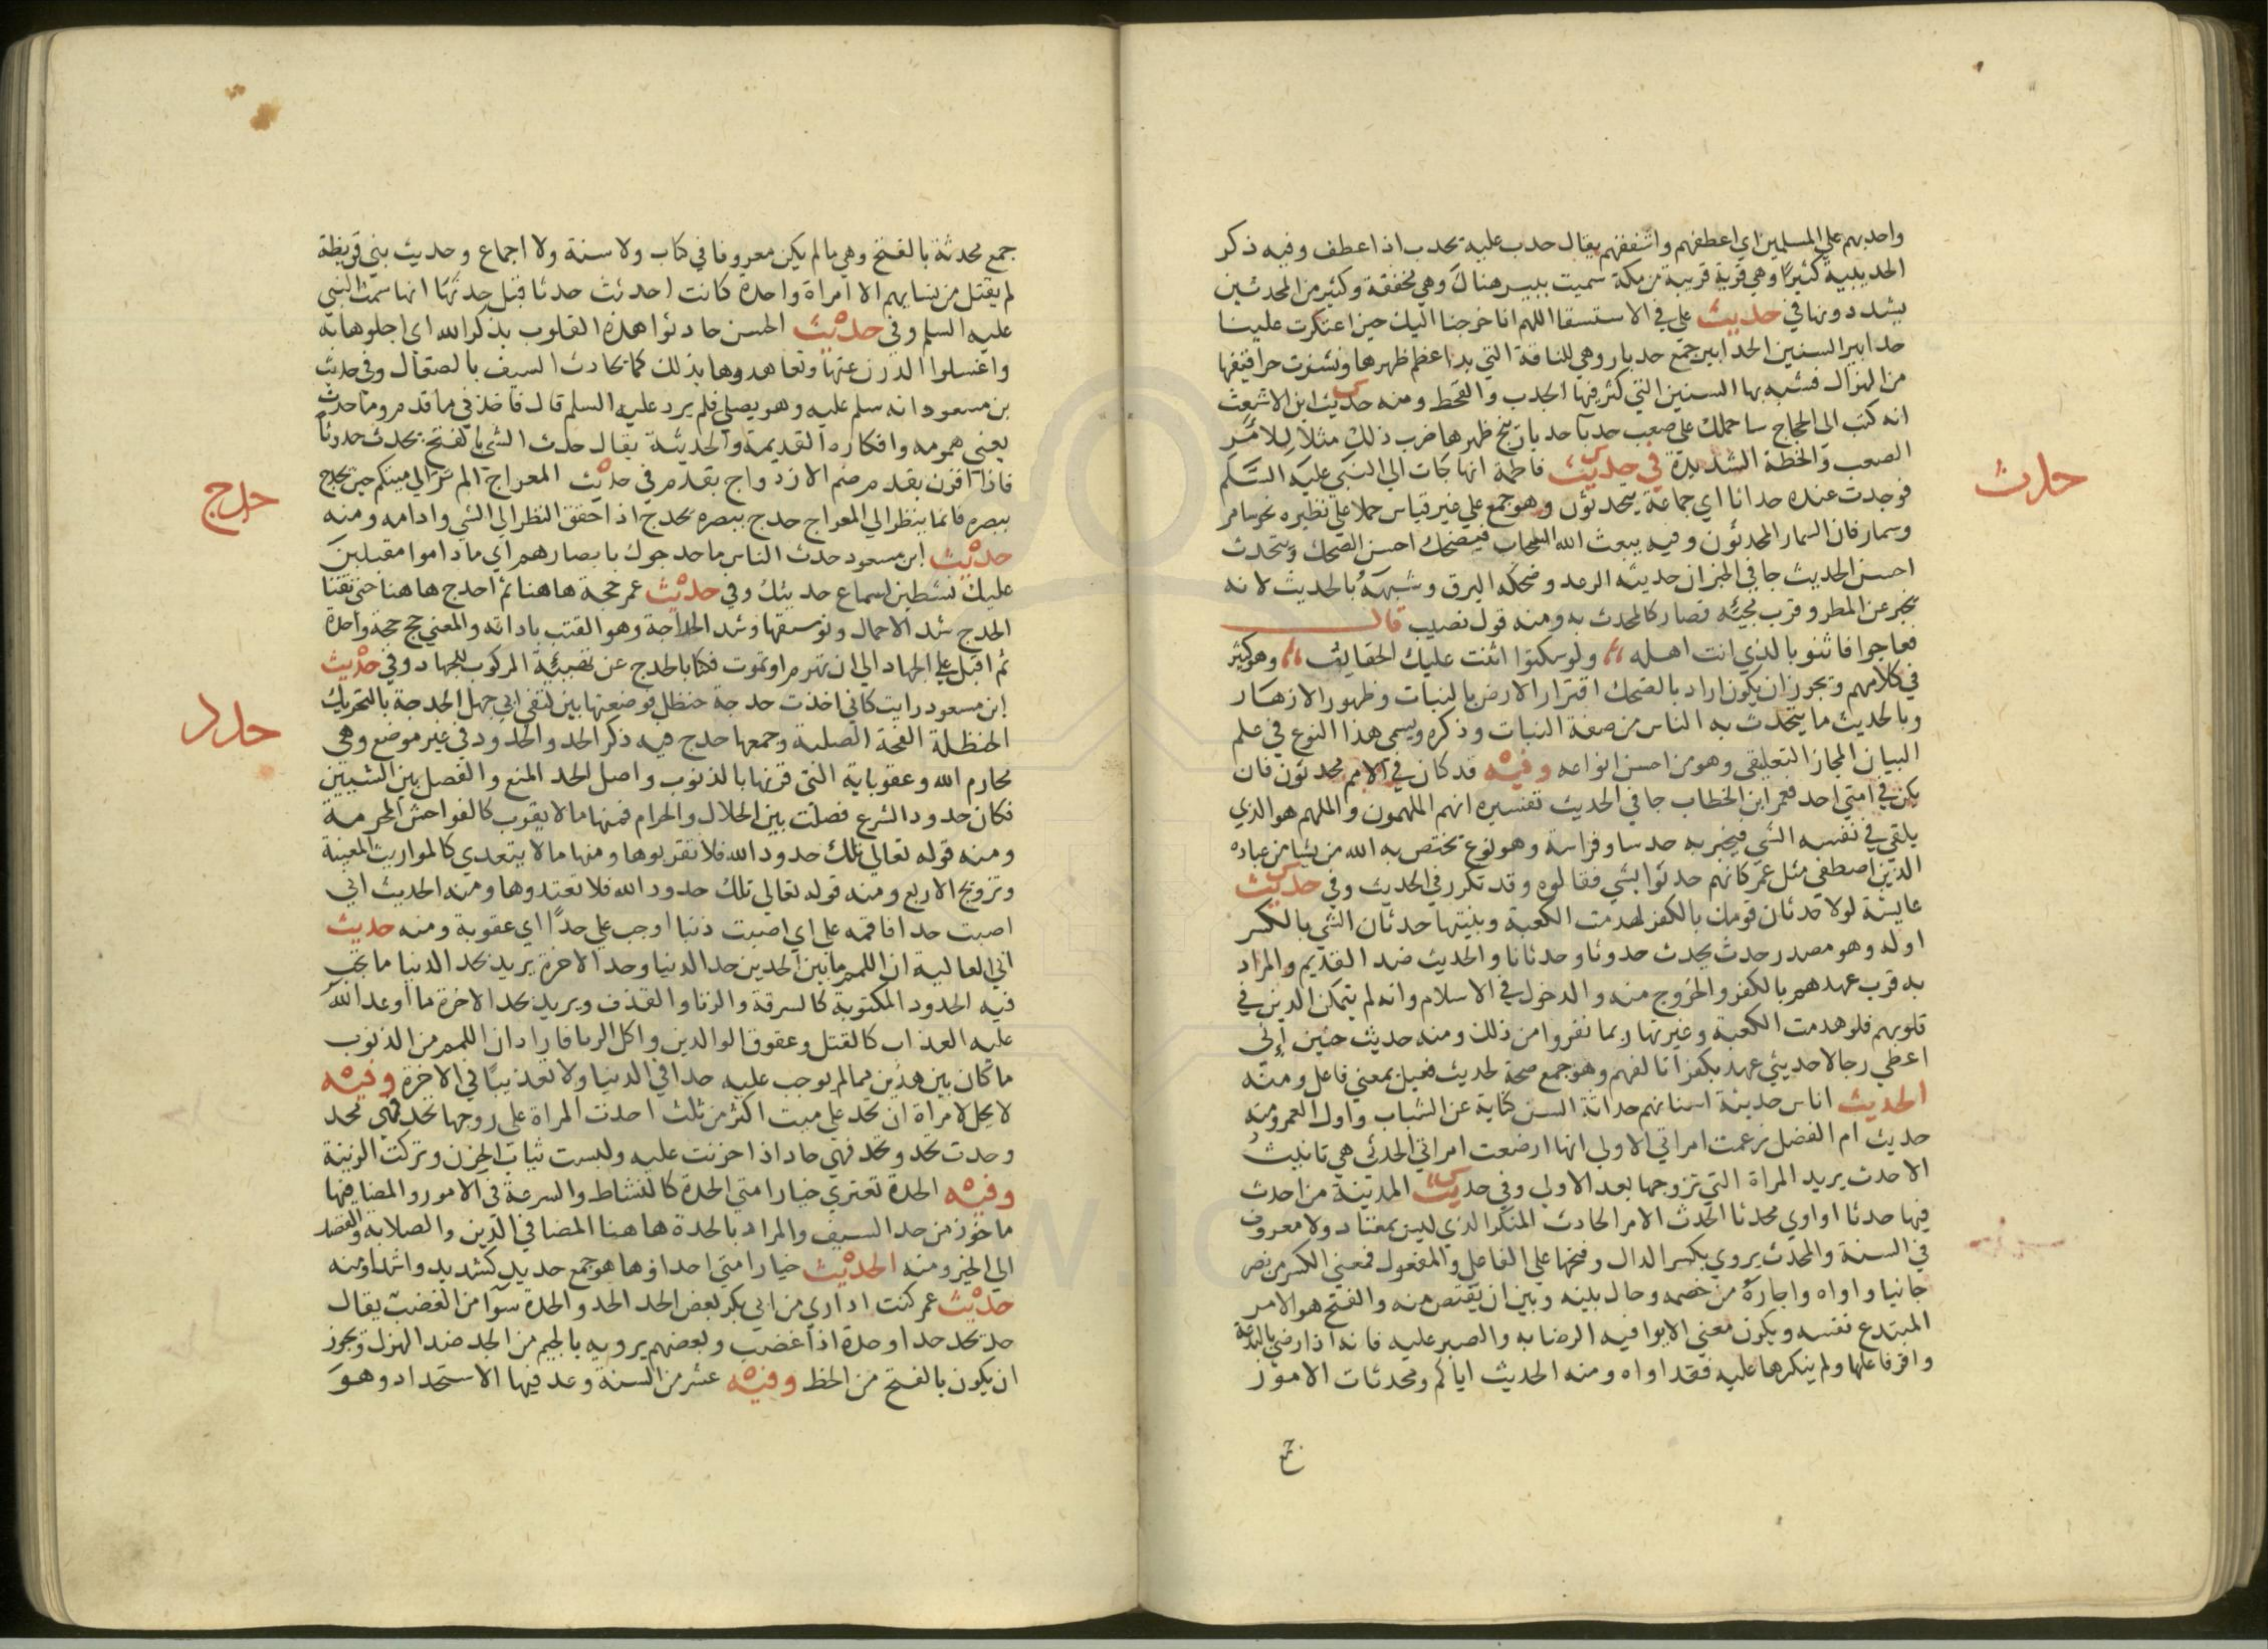 واحدبهم علي المسلمين اي اعطفهم واشفقهم يقال حدب عليه يحدب اذا عطف وفيه ذكر
الحديبية كثيرًا وهي قرية قريبة من مكة سميت ببير هناك وهي مخففة وكثير من المحدثين
يشددونها في حديث علي في الاستسقا اللهم انا خرجنا اليك حين اعتكرت علينا
حدابير السنين الحدابير جمع حدبار وهي للناقة التي بدا عظم ظهرها ونشزت حراقيفها
من الهزال فشبه بها السنين التي كثر فيها الجدب والقحط ومنه حديث ابن الاشعث
انه كتب الى الحجاج ساحملك على صعب حدبا حدبار ينج ظهرها ضرب ذلك مثلا للامر
الصعب والخطة الشديدة في حديث فاطمة انها جات الي النبي عليه السلم
حدث
فوجدت عنده حداثا اي جماعة يتحدثون وهو جمع علي غير قياس حملا علي نظيره نحو سامر
وسمار فان السمار المحدثون وفيه يبعث الله السحاب فيضحك احسن الضحك ويتحدث
احسن الحديث جا في الخبر ان حديثه الرعد وضحكه البرق وشبهه بالحديث لانه
يخبر عن المطر وقرب مجيئه فصار كالمحدث به ومنه قول نصيب قال
فعاجوا فاثنوا بالذي انت اهله ولو سكتوا اثنت عليك الحقايب وهو كثير
في كلامهم ويجوز ان يكون اراد بالضحك افترار الارض بالنبات وظهور الازهار
وبالحديث ما يتحدث به الناس من صفة النبات وذكره ويسمى هذا النوع في علم
البيان المجاز التعليقي وهو من احسن انواعه وفيه قد كان في الامم محدثون فان
يكن في امتي احد فعمر ابن الخطاب جا في الحديث تفسيره انهم الملهمون والملهم هو الذي
يلقي في نفسه الشي فيخبر به حدسا وفراسة وهو نوع يختص به الله من يشا من عباده
الذين اصطفي مثل عمر كانهم حدثوا بشي فقالوه وقد تكرر في الحديث وفي حديث
عايشة لولا حدثان قومك بالكفر لهدمت الكعبة وبنيتها حدثان الشي بالكسر
اوله وهو مصدر حدث يحدث حدوثا وحدثانا والحديث ضد القديم والمراد
به قرب عهدهم بالكفر والخروج منه والدخول في الاسلام وانه لم يتمكن الدين في
قلوبهم فلو هدمت الكعبة وغيرتها ربما نفروا من ذلك ومنه حديث حنين إني
اعطي رجالا حديثي عهد بكفر اتالفهم وهو جمع صحة لحديث فعيل بمعني فاعل ومنه
الحديث اناس حديثة اسنانهم حداثة السن كناية عن الشباب واول العمر ومنه
حديث ام الفضل زعمت امراتي الاولي انها ارضعت امراتي الحدثى هي تانيث
الاحدث يريد المراة التي تزوجها بعد الاولي وفي حديث المدينة من احدث
فيها حدثا او اوي محدثا الحدث الامر الحادث المنكر الذي ليس بمعتاد ولا معروف
في السنة والمحدث يروي بكسر الدال وفتحها علي الفاعل والمفعول فمعني الكسر من نصر
جانيا واواه واجاره من خصمه وحال بينه وبين ان يقتص منه والفتح هو الامر
المبتدع نفسه ويكون معني الايوا فيه الرضا به والصبر عليه فانه اذا رضي بالبدعة
واقر فاعلها ولم ينكرها عليه فقد اواه ومنه الحديث اياكم ومحدثات الامور
جمع محدثة بالفتح وهي مالم يكن معروفا في كتاب ولا سنة ولا اجماع وحديث بني قريظة
لم يقتل من نسايهم الا امراة واحدة كانت احدثت حدثا قيل حدثها انها سمت النبي
عليه السلم وفي حديث الحسن حادثوا هذه القلوب بذكر الله اى اجلوها به
واغسلوا الدرن عنها وتعاهدوها بذلك كما يحادث السيف بالصقال وفي حديث
بن مسعود انه سلم عليه وهو يصلي فلم يرد عليه السلم قال فاخذني ما قدم وما حدث
يعني همومه وافكاره القديمة والحديثة يقال حدث الشي بالفتح يحدث حدوثا
فاذا اقرن بقدم ضم الازدواج بقدم وفي حديث المعراج الم تر الي ميتكم حين يحدج
حدج
ببصره فانما ينظر الي المعراج حدج ببصره يحدج اذا حقق النظر الي الشي وادامه ومنه
حديث ابن مسعود حدث الناس ما حدجوك بابصارهم اي ما داموا مقبلين
عليك نشطين لسماع حديثك وفي حديث عمر حجة هاهنا ثم احدج هاهنا حتى تفنا
الحدج شد الاحمال وتوسيقها وشد الحداجة وهو القتب باداته والمعني حج حجة واحدة
ثم اقبل علي الجهاد الي ان تهرم او تموت فكنا بالحدج عن تهيئة المركوب للجهاد وفي حديث
ابن مسعود رايت كاني اخذت حدجة حنظل فوضعتها بين كتفي ابي جهل الحدجة بالتحريك
حدد
الحنظلة الفجة الصلبة وجمعها حدج فيه ذكر الحد والحدود في غير موضع وهي
محارم الله وعقوباته التي قرنها بالذنوب واصل الحد المنع والفصل بين الشيين
فكان حدود الشرع فصلت بين الحلال والحرام فمنها مالا يقرب كالفواحش المحرمة
ومنه قوله تعالي تلك حدود الله فلا تقربوها ومنها مالا يتعدي كالمواريث المعينة
وتزويج الاربع ومنه قوله تعالي تلك حدود الله فلا تعتدوها ومنه الحديث اني
اصبت حدا فاقمه على اي اصبت ذنبا اوجب علي حدًا اي عقوبة ومنه حديث
ابي العالية ان اللمم مابين الحدين حد الدنيا وحد الاخرة يريد بحد الدنيا ما تجب
فيه الحدود المكتوبة كالسرقة والزنا والقذف ويريد بحد الاخرة ما اوعد الله
عليه العذاب كالقتل وعقوق الوالدين واكل الربا فاراد ان اللمم من الذنوب
ما كان بين هذين مما لم يوجب عليه حدا في الدنيا ولا تعذيبًا في الاخرة وفيه
لا يحل لامراة ان تحد علي ميت اكثر من ثلث احدت المراة علي زوجها تحد فهي محد
وحدت تحد وتحد فهي حاد اذا حزنت عليه ولبست ثياب الحزن وتركت الزينة
وفيه الحدة تعتري خيار امتي الحدة كالنشاط والسرعة في الامور والمضا فيها
ماخوذ من حد السيف والمراد بالحدة هاهنا المضا في الدين والصلابة والقصد
الي الخير ومنه الحديث خيار امتي احداؤها هو جمع حديد كشديد واشداء ومنه
حديث عمر كنت اداري من ابي بكر بعض الحد الحد والحدة سوآ من الغضب يقال
حد يحد حدا وحدة اذا غضب وبعضهم يرويه بالجيم من الجد ضد الهزل ويجوز
ان يكون بالفتح من الحظ وفيه عشر من السنة وعد فيها الاستحداد وهو